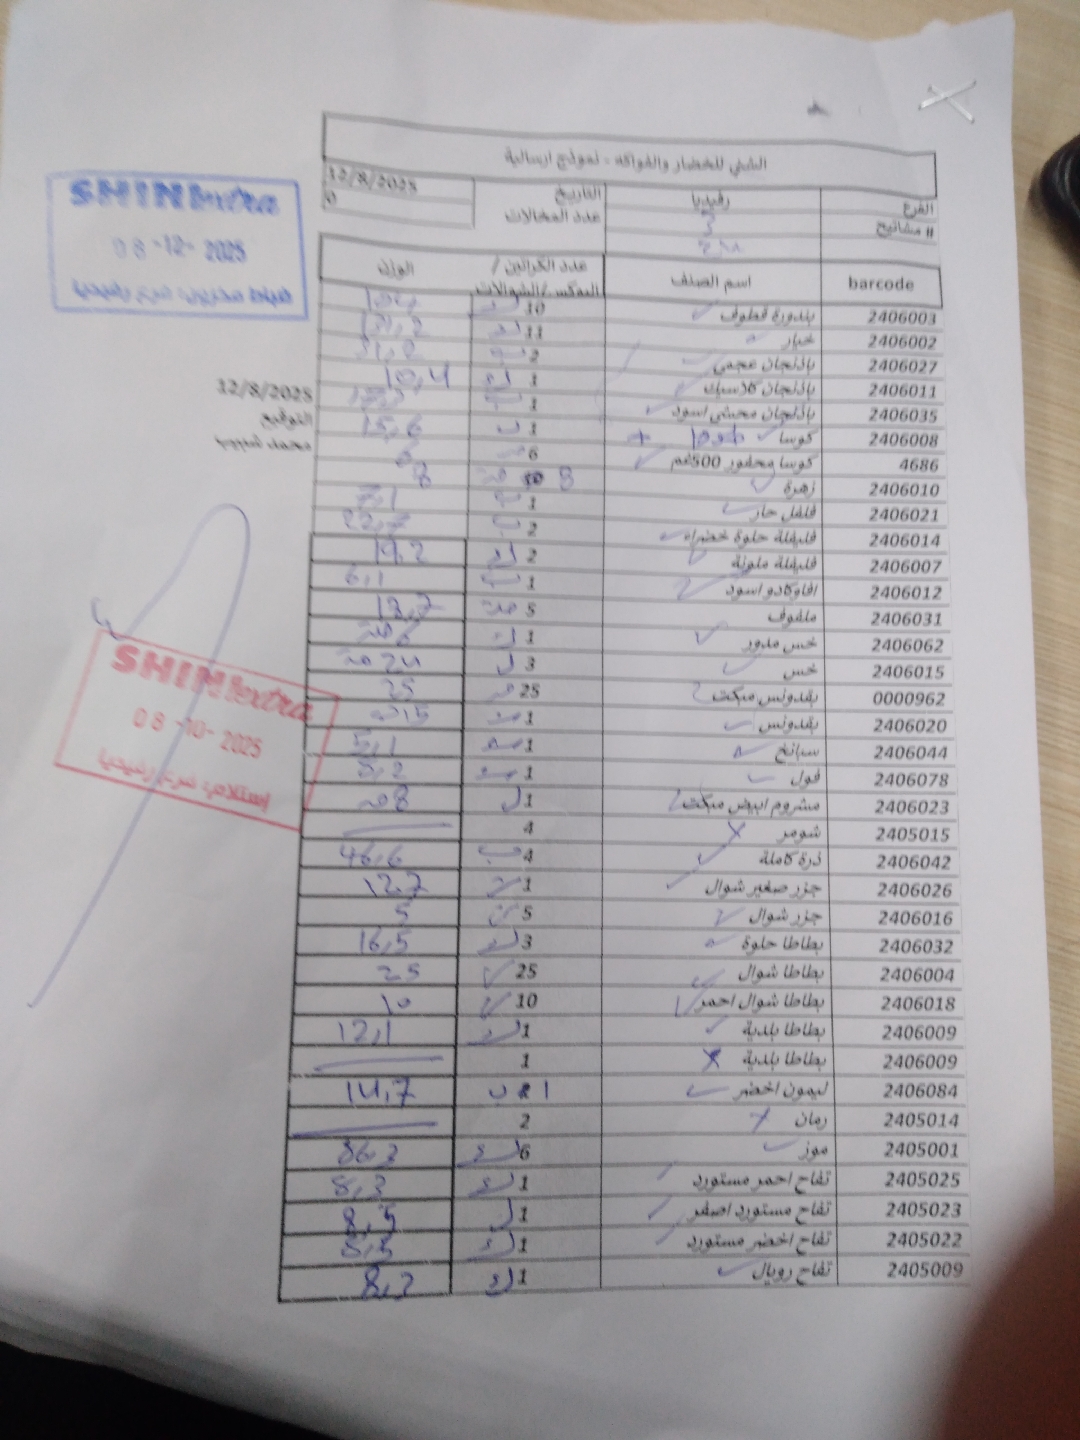 الشني للخضار والفواكه - نموذج ارسالية
الفرع رفيديا التاريخ 12/8/2025
# مشاتيح 3 عدد المخالات 0
barcode اسم الصنف عدد الكراتين / البوكس/الشوالات الوزن
2406003 بندورة قطوف 10
2406002 خيار 11
2406027 باذنجان عجمي 2 31,2
2406011 باذنجان كلاسيك 1 10,4
2406035 باذنجان محشي اسود 1
2406008 كوسا + 1 15,6
4686 كوسا محفور 500غم 6
2406010 زهرة 8 8
2406021 فلفل حار 1 7,1
2406014 فليفلة حلوة خضراء 2 22,7
2406007 فليفلة ملونة 2 19,2
2406012 افاوكادو اسود 1 6,1
2406031 ملفوف 5 13,7
2406062 خس مدور 1
2406015 خس 3 24
0000962 بقدونس مبكت 25 25
2406020 بقدونس 1 15
2406044 سبانخ 1 5,1
2406078 فول 1 5,2
2406023 مشروم ابيض مبكت 1 8
2405015 شومر 4
2406042 ذرة كاملة 4 46,6
2406026 جزر صغير شوال 1 12,7
2406016 جزر شوال 5 5
2406032 بطاطا حلوة 3 16,5
2406004 بطاطا شوال 25 25
2406018 بطاطا شوال احمر 10 10
2406009 بطاطا بلدية 1 12,1
2406009 بطاطا بلدية 1
2406084 ليمون اخضر 1 14,7
2405014 رمان 2
2405001 موز 6 86,2
2405025 تفاح احمر مستورد 1 8,3
2405023 تفاح مستورد اصفر 1 8,5
2405022 تفاح اخضر مستورد 1 8,5
2405009 تفاح رويال 1 8,2
SHINI extra
08-12-2025
12/8/2025
التوقيع
محمد شبيب
SHINI extra
08-10-2025